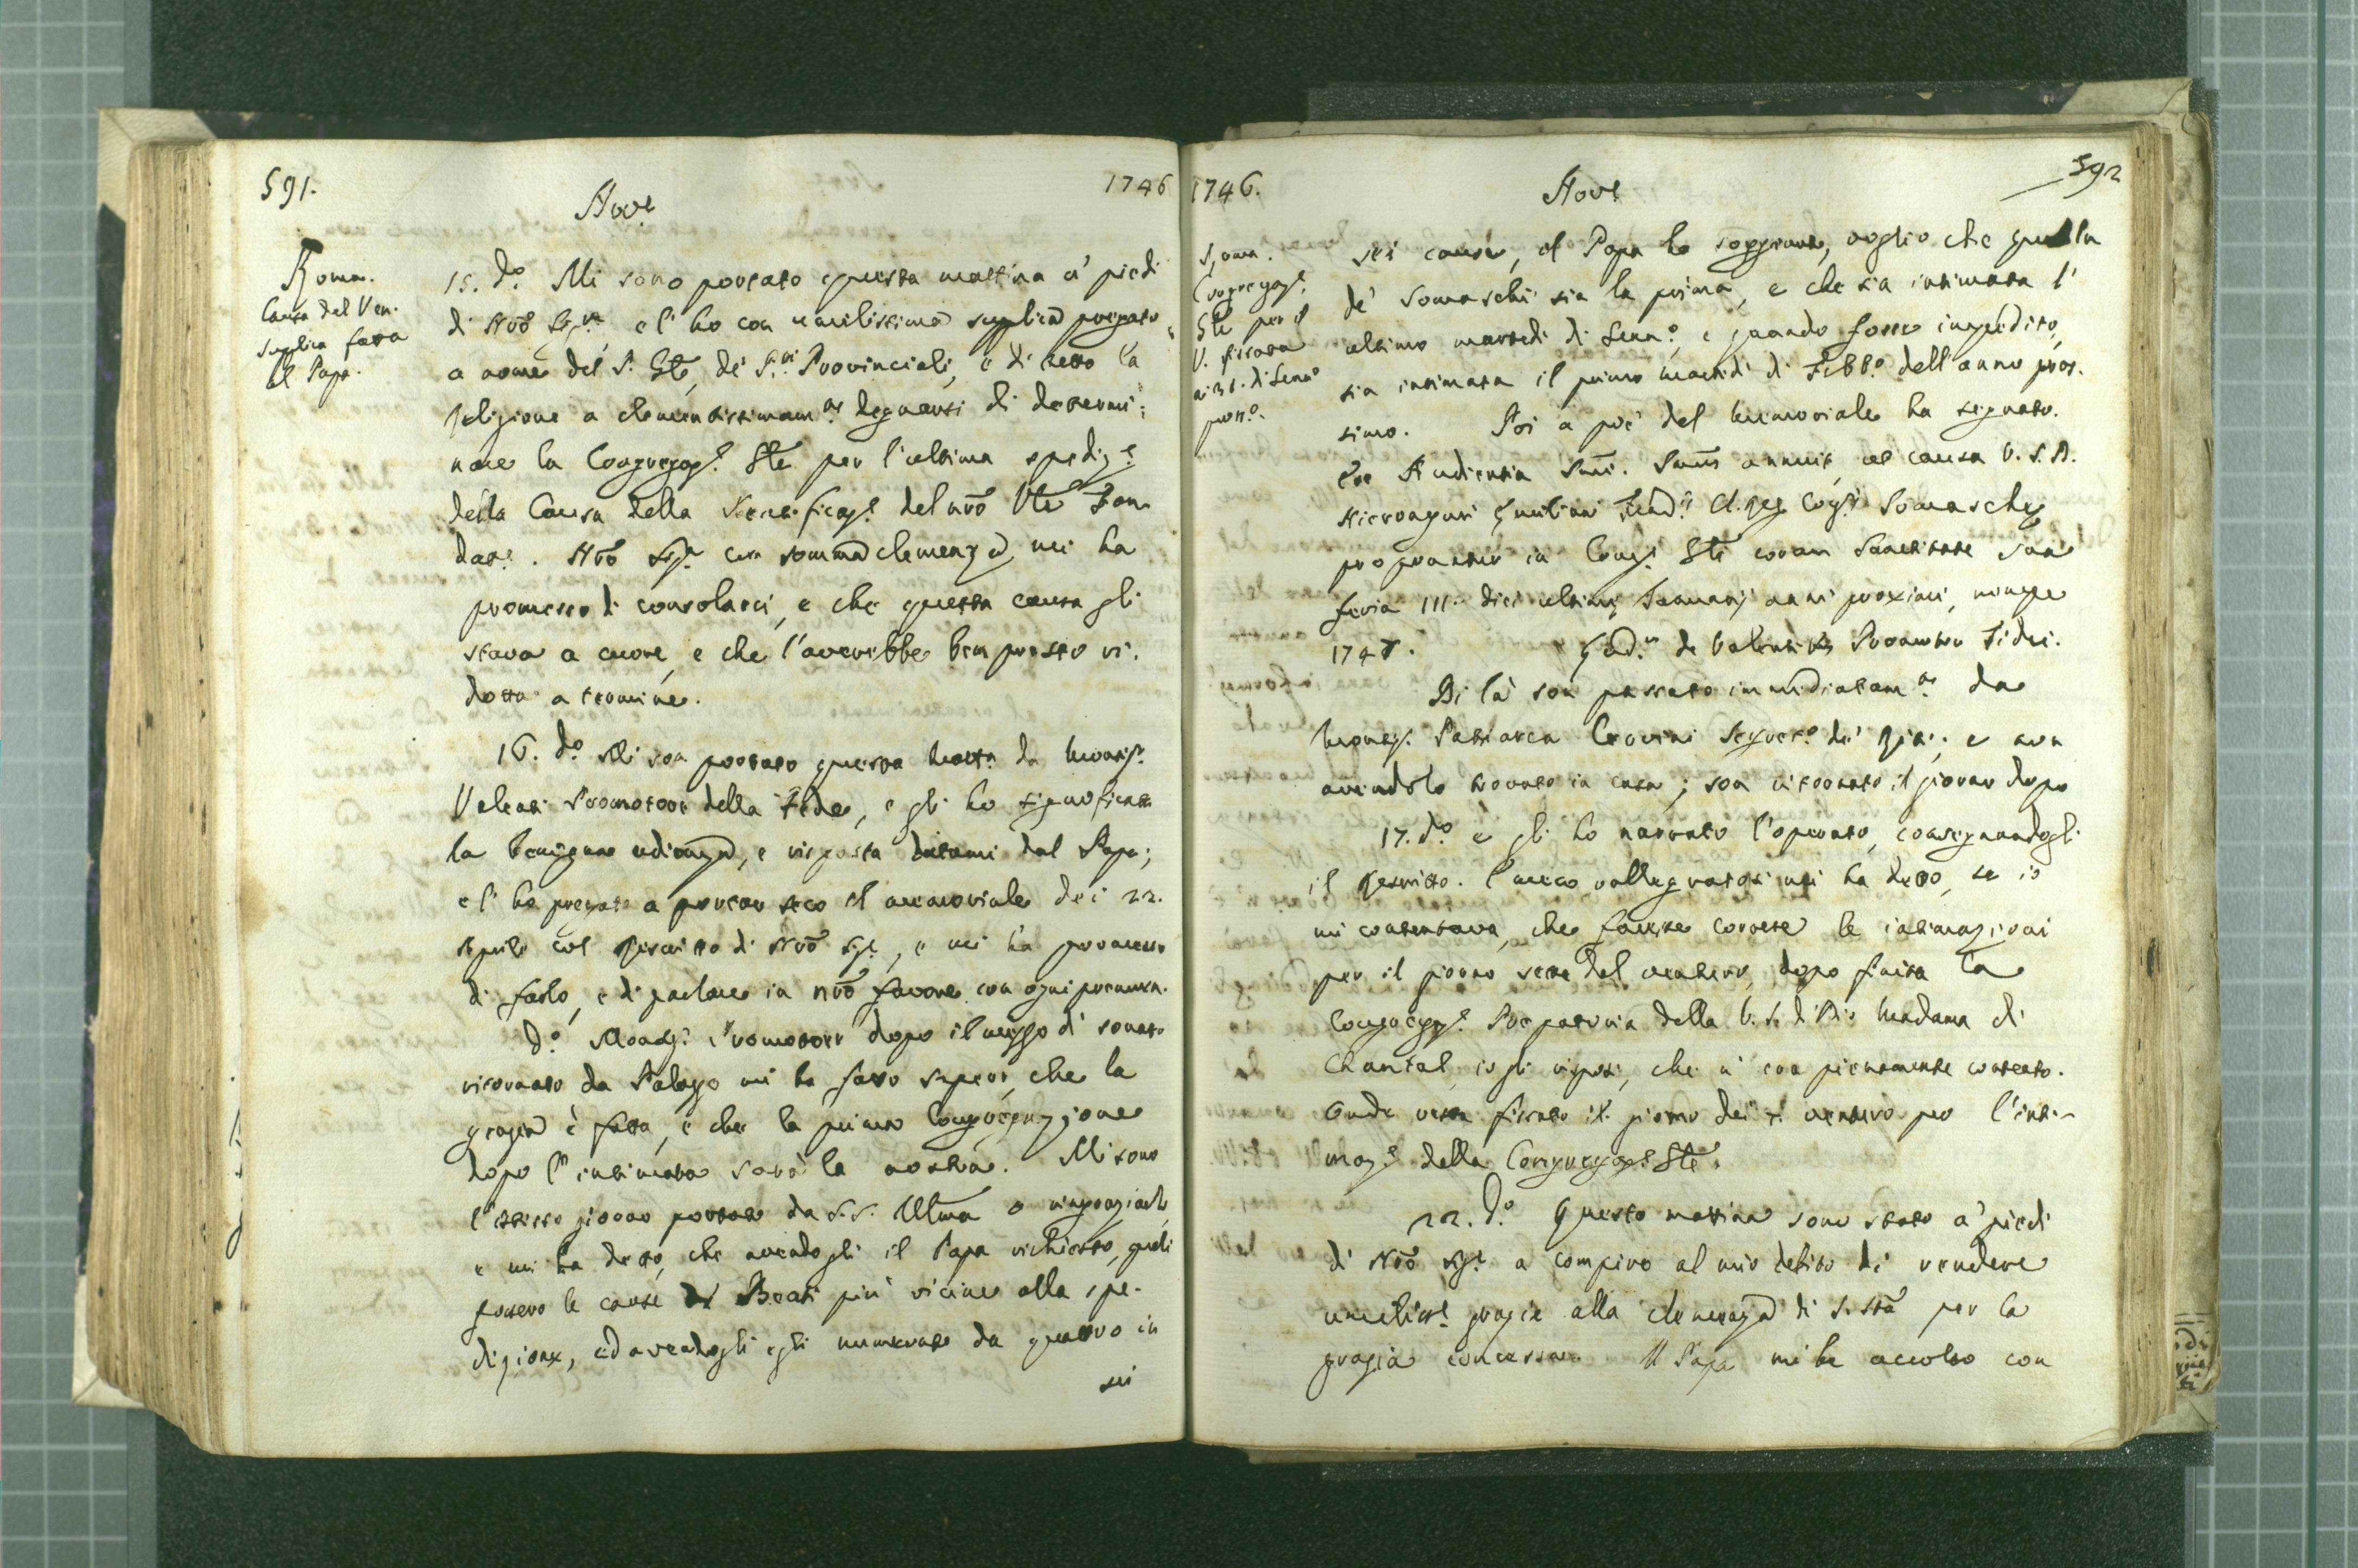 591.
Nov.e
1746
Roma.
Causa del Ven.
Supplica fatta
al Papa.
15. d.o Mi sono portato questa mattina a' piedi
di Nrō Sig.re e l'ho con umilissima supplica pregato
a nome del P. Gle, de' P.ri Provinciali, e di tutta la
Religione a clementissimam.te degnarsi di determi:
nare la Congregaz.e Gle per l'ultima spediz.e
della Causa della Beatificaz.e del nrō Vle Fon
dat.e. Nrō Sig.re con somma clemenza mi ha
promesso di consolarci, e che questa causa gli
stava a cuore, e che l'averebbe ben presto ri.
dotta a termine.
16. d.o Mi son portato questa matt.a da Monsig.r
Valenti Promotore della Fede, e gli ho significata
la benigna udienza, e risposta datami dal Papa;
e l'ho pregato a portar seco il memoriale dei 22.
Aprile col Rescritto di Nrō Sig.e, e mi ha promesso
di farlo, e di parlare in nrō favore con ogni premura.
d.o Monsig.r Promotore dopo il mezzo dì sonato
ritornato da Palazzo mi ha fatto sapere, che la
grazia è fatta, e che la prima Congregazione
dopo l'intimata sarà la nostra. Mi sono
l'istesso giorno portato da S.S. Illma a ringraziarlo,
e mi ha detto, che avendogli il Papa richiesto, quali
fussero le cause de' Beati più vicine alla spe-
dizione, ed avendogli egli numerate da quattro in
sei
1746.
Nov.e
592
Roma.
Congregaz.e
Gle per il
V. fissata
a' 31. di Genn.o
pross.o
sei cause, il Papa ha soggiunto, voglio che quella
de' Somaschi sia la prima, e che sia intimata l'
ultimo martedì di Genn.o, e quando fosse impedito,
sia intimata il primo martedì di Febb.o dell'anno pros.
simo. Poi a piè del memoriale ha segnato.
Ex Audientia Ssmi. Ssmus annuit, ut causa V. S. D.
Hieronymi Æmiliani Fund.is Cl. Reg. Cong.is Somaschæ
proponatur in Cong.e Gli coram Sanctitate sua
feria III. diei ultimi Januarij anni proximi, nempe
1747. Lud.us de Valentibus Promotor Fidei.
Di là son passato immediatam.te da
Monsig.r Patriarca Cervini Segret.o de' Riti; e non
avendolo trovato in casa; son ritornato il giorno dopo
17. d.o e gli ho narrato l'operato, consegnandogli
il Rescritto. Meco rallegratosi mi ha detto, se io
mi contentava, che facesse correre le intimazioni
per il giorno sette del venturo, dopo finita la
Congregaz.e Preparatoria della V. S. di Dio Madama di
Chantal, io gli risposi, che n'era pienamente contento.
Onde resta fissato il giorno dei 7. venturo per l'inti-
maz.e della Congregaz.e Gle.
22. d.o Questa mattina sono stato a' piedi
di Nrō Sig.e a compire al mio debito di rendere
umiliss.e grazie alla clemenza di S. Stà per la
grazia concessa. Il Papa mi ha accolto con